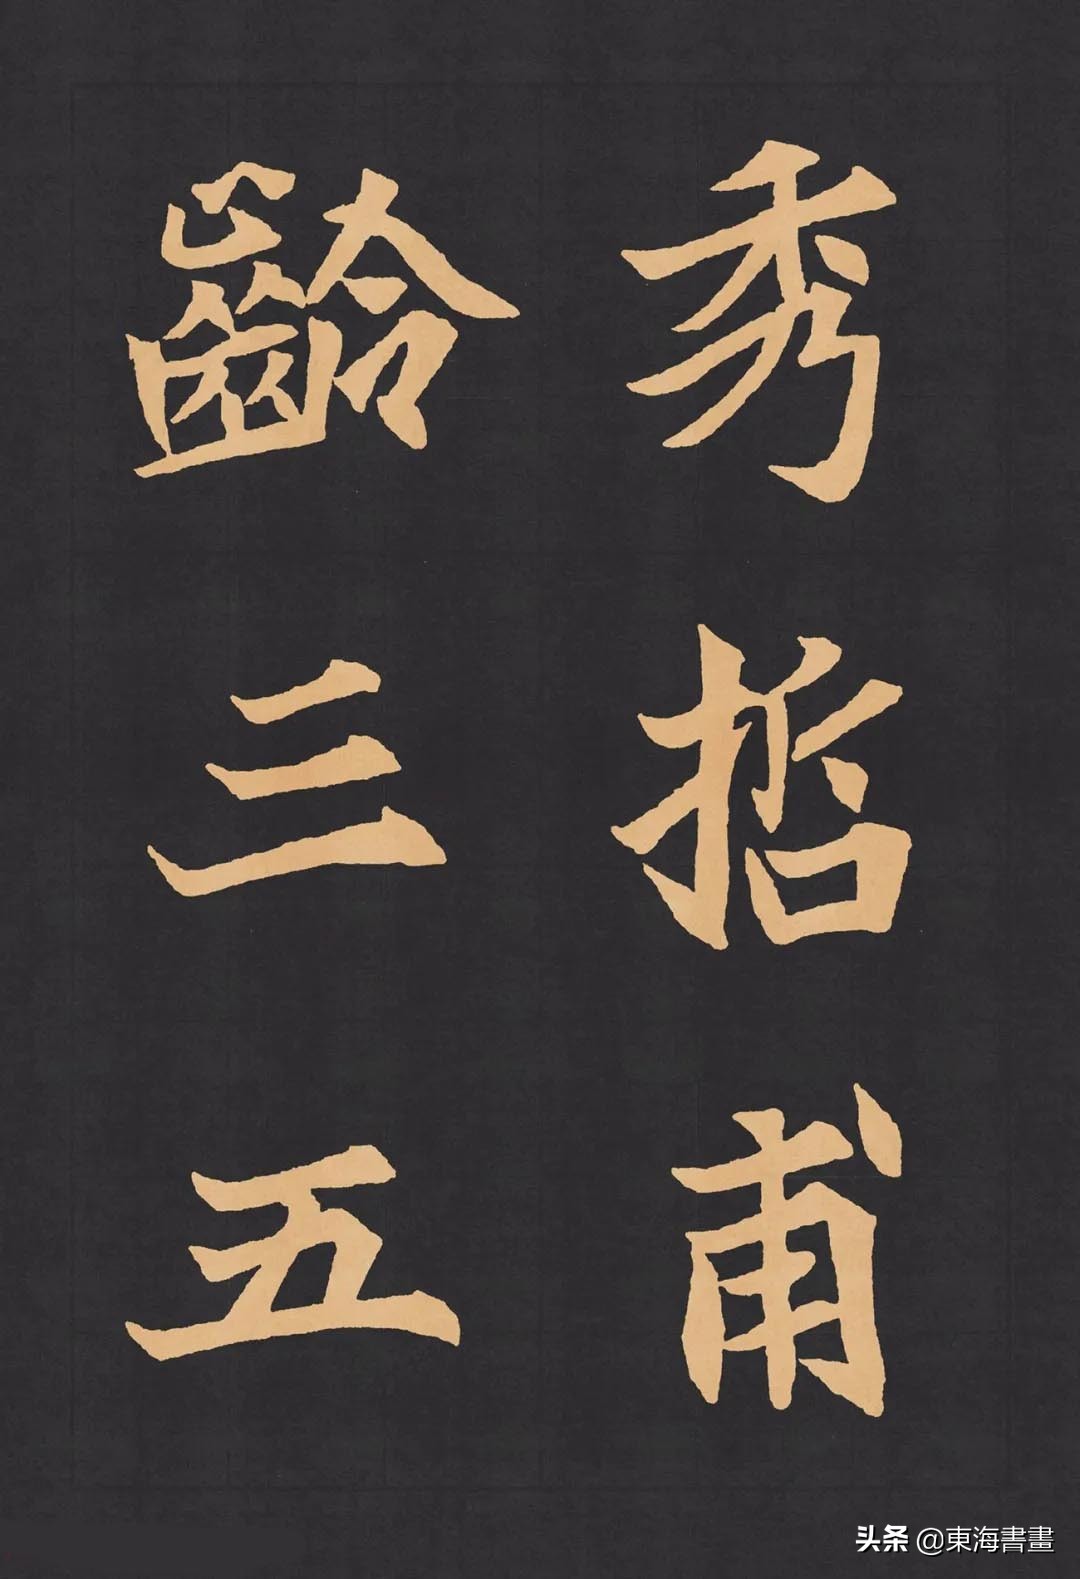 秀哲甫
齡三五
头条 @東海書畫